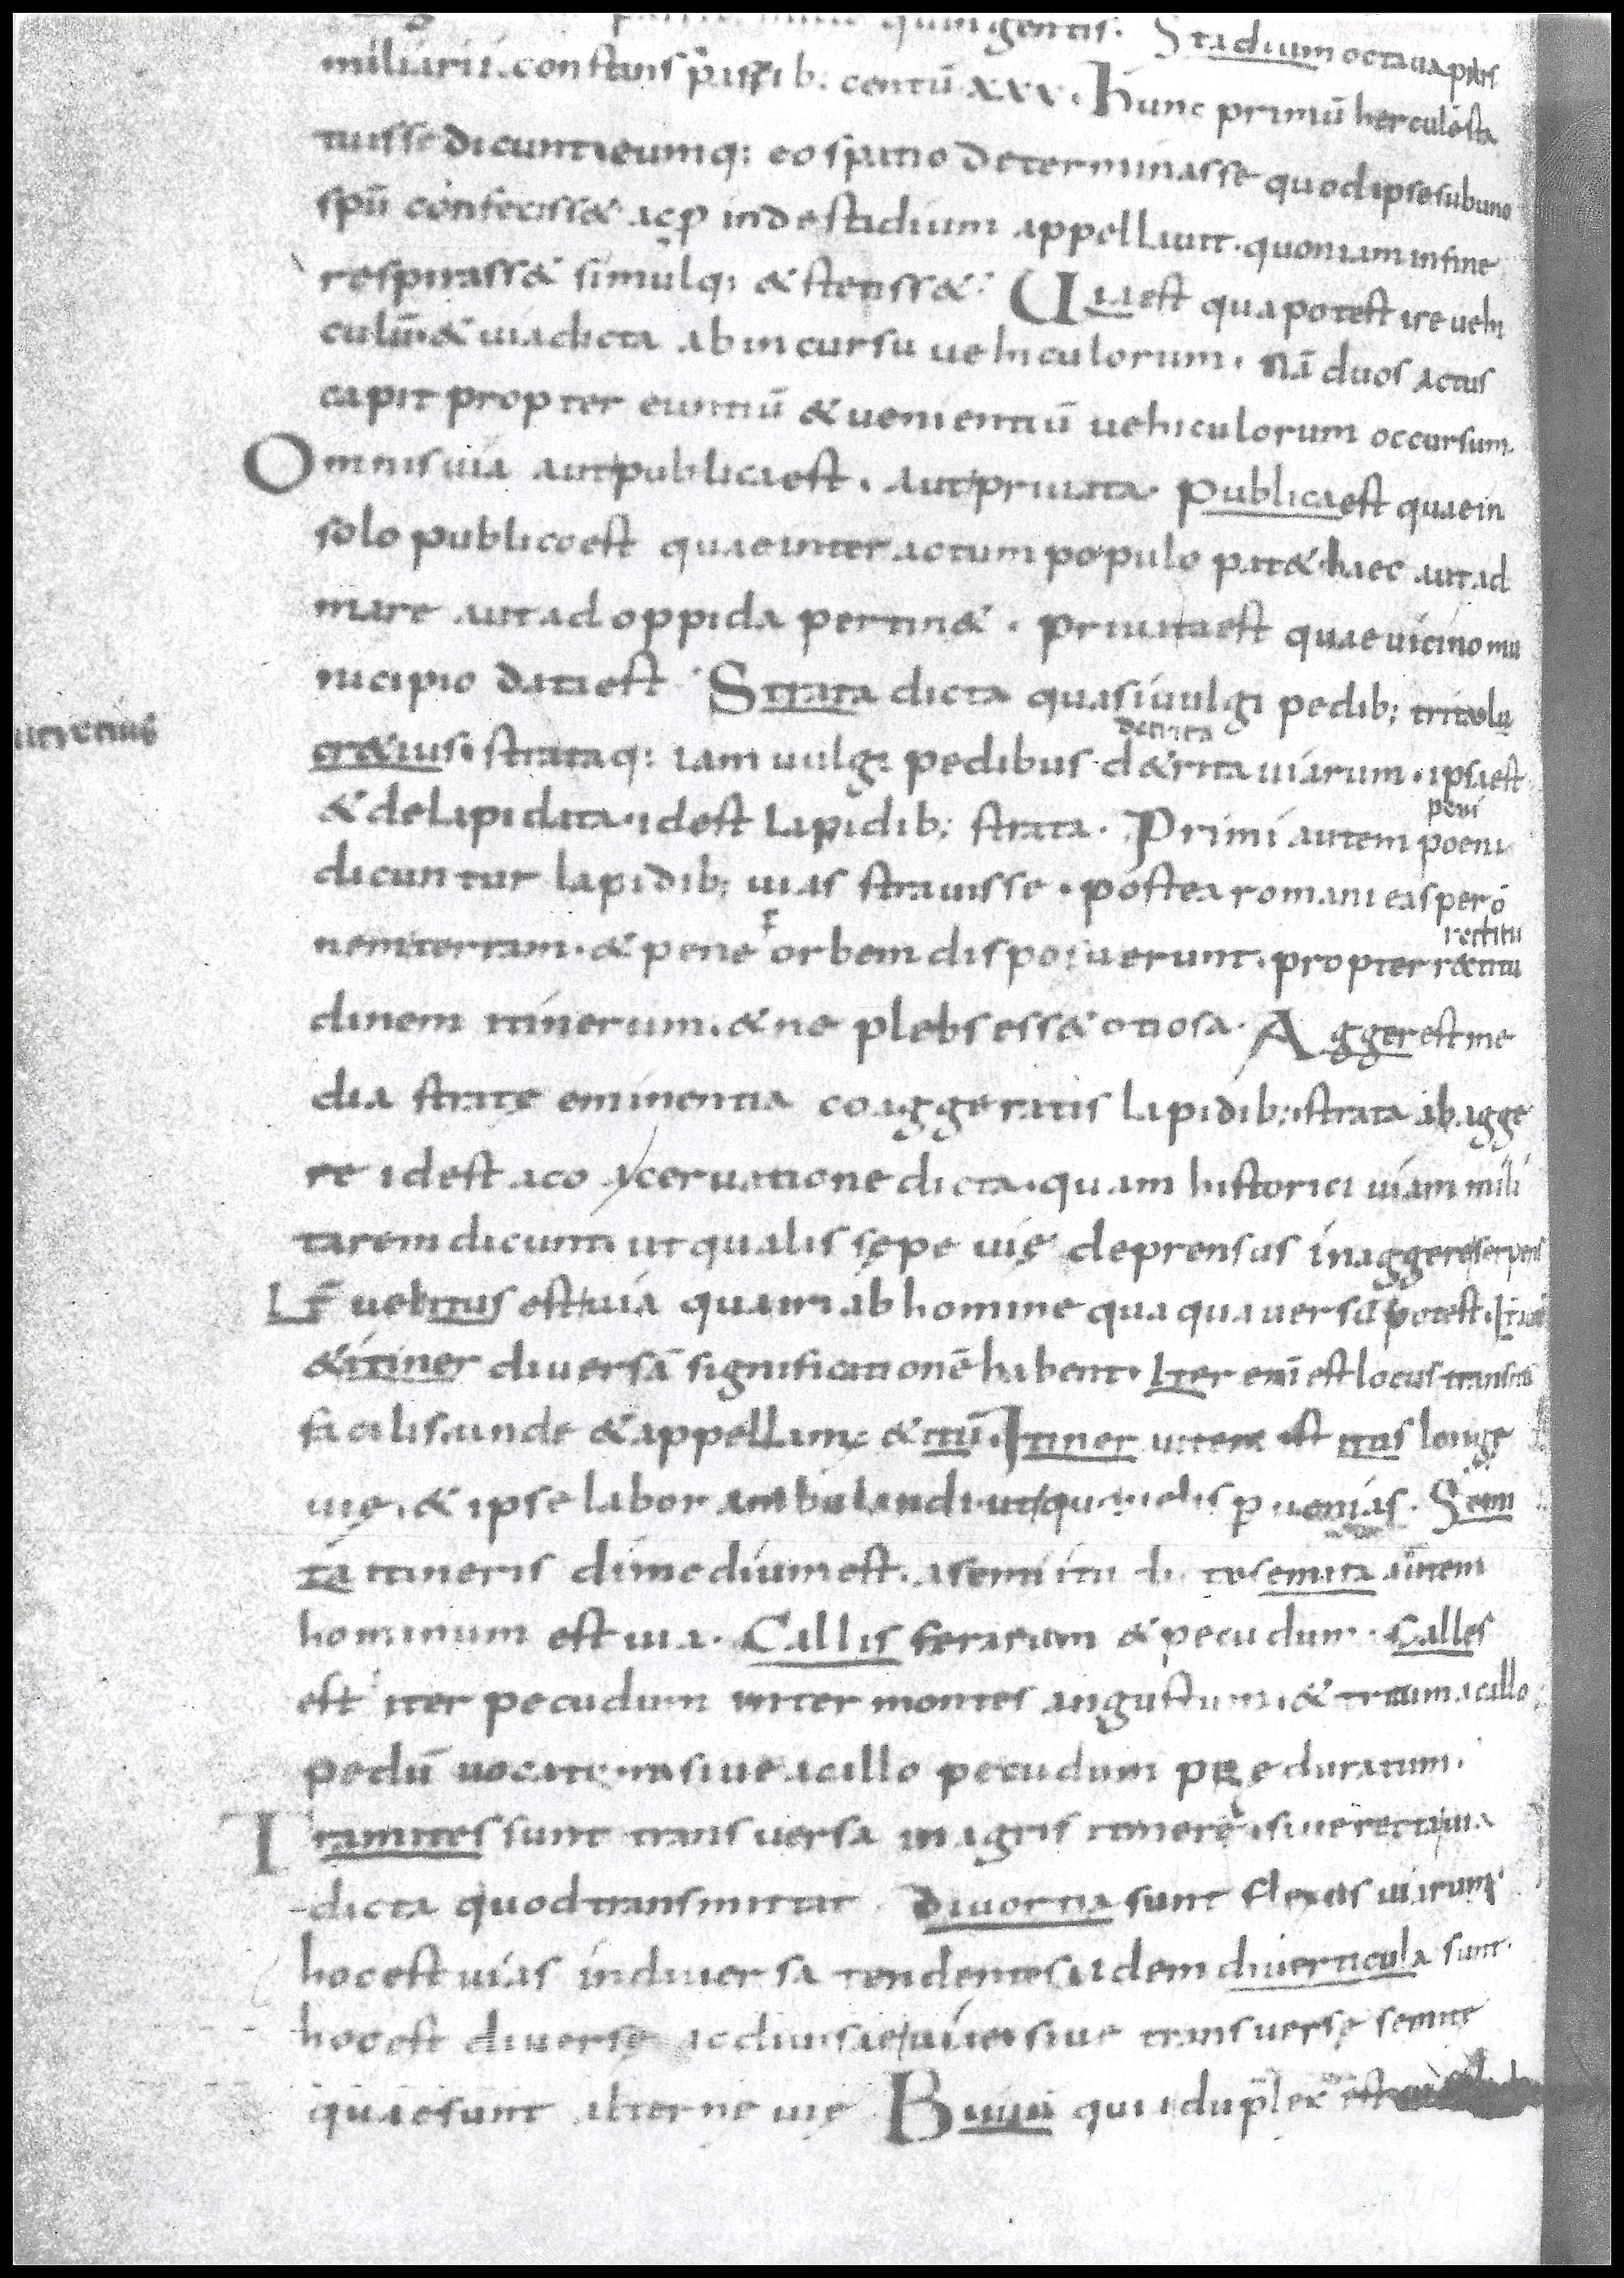 quingentis. Stadium octaua pars
miliarii. constans passib. centū xxv. hunc primū herculē sta
tuisse dicunt. eumq; eo spatio determinasse quod ipse sub uno
spū confeciss& ac inde stadium appellauit. quoniam in fine
respirass& simulq; & stetiss&. Uia est qua potest ire uehi
culū. & uia dicta ab incursu uehiculorum. Nā duos actus
capit propter euntiū & uenientiū uehiculorum occursum.
Omnis uia aut publica est. aut priuata. Publica est quae in
solo publico est quae inter actum populo pat& haec aut ad
mare aut ad oppida pertin&. priuata est quae uicino mu
nicipio data est Strata dicta quasi uulgi pedib; trita. lu
cr&ius. strataq; iam uulgi pedibus d&rita uiarum. ipsa est
detrita
& delapidata. id est lapidib; strata. Primi autem poeni
peni
dicuntur lapidib; uias strauisse. postea romani eas per ō
nem terram. & pene orbem disposuerunt. propter r&itu
rectitu
dinem itinerum. & ne plebs ess& otiosa. Agger est me
dia stratę eminentia coaggeratis lapidib; strata ab agge
re id est a coaceruatione dicta. quam historici uiam mili
tarem dicunt ut qualis sępe uię deprensus in aggere serpens
uel itus est uia qua ab homine quaqua uersū potest. Iter
& itiner diuersā significationē habent. Iter enī est locus transitu
facilis. unde & appellam; & itū. Itiner autem est itus longę
uię. & ipse labor ambulandi ut quo uelis puenias. Semi
ta itineris dimedium est. a semi itu dicta semita autem
hominum est uia. Callis ferarum & pecudum. Calles
est iter pecudum inter montes angustum. & tritum a callo
pedū uocatum siue a callo pecudum pRęduratum.
Tramites sunt transuersa in agris itinerę. siue recta uia
dicta quod transmittat. Diuortia sunt flexus uiarum
hoc est uias in diuersa tendentes. idem diuerticula sunt.
hoc est diuersę ac diuisae uiae. siue transuersę semitę
quae sunt alterne uię Biuia quia duplex est